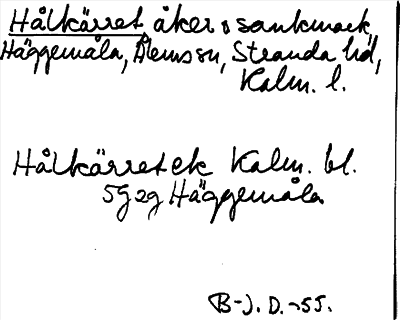 Hålkärret, åker o sankmark,
Häggemåla, Ålems sn, Stranda hd,
Kalm. l.
Hålkärret ek Kalm. bl.
5g eg Häggemåla
B-J. D. -55.